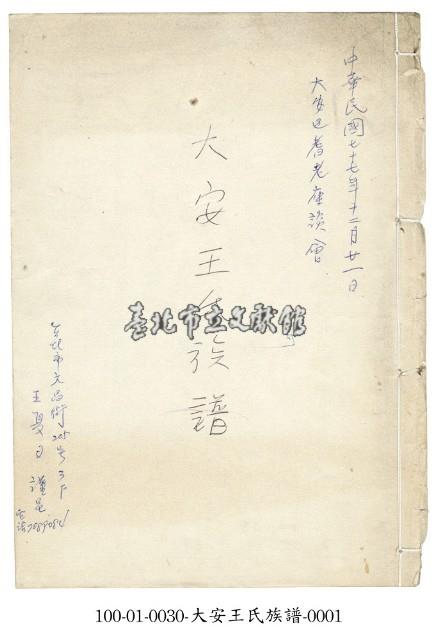 中華民國七十七年十二月廿一日
大安區耆老座談會
大安王氏族譜
臺北市立文獻館
台北市文昌街
100-01-0030-大安王氏族譜-0001